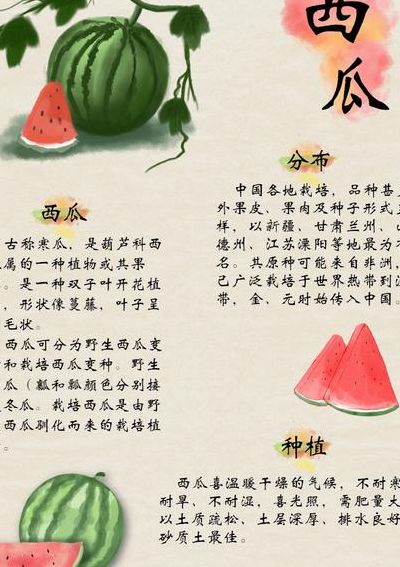 西
瓜
西瓜
古称寒瓜，是葫芦科西
属的一种植物或其果
。是一种双子叶开花植
，形状像蔓藤，叶子呈
毛状。
西瓜可分为野生西瓜变
和栽培西瓜变种。野生
瓜（瓤和瓢颜色分别接
冬瓜。栽培西瓜是由野
西瓜驯化而来的栽培植
。
分布
中国各地栽培，品种甚
外果皮、果肉及种子形式
样，以新疆、甘肃兰州、山
德州、江苏溧阳等地最为
名。其原种可能来自非洲，
已广泛栽培于世界热带到
带，金、元时始传入中国。
种植
西瓜喜温暖干燥的气候，不耐寒
耐旱、不耐湿，喜光照，需肥量大
以土质疏松、土层深厚、排水良好
砂质土最佳。